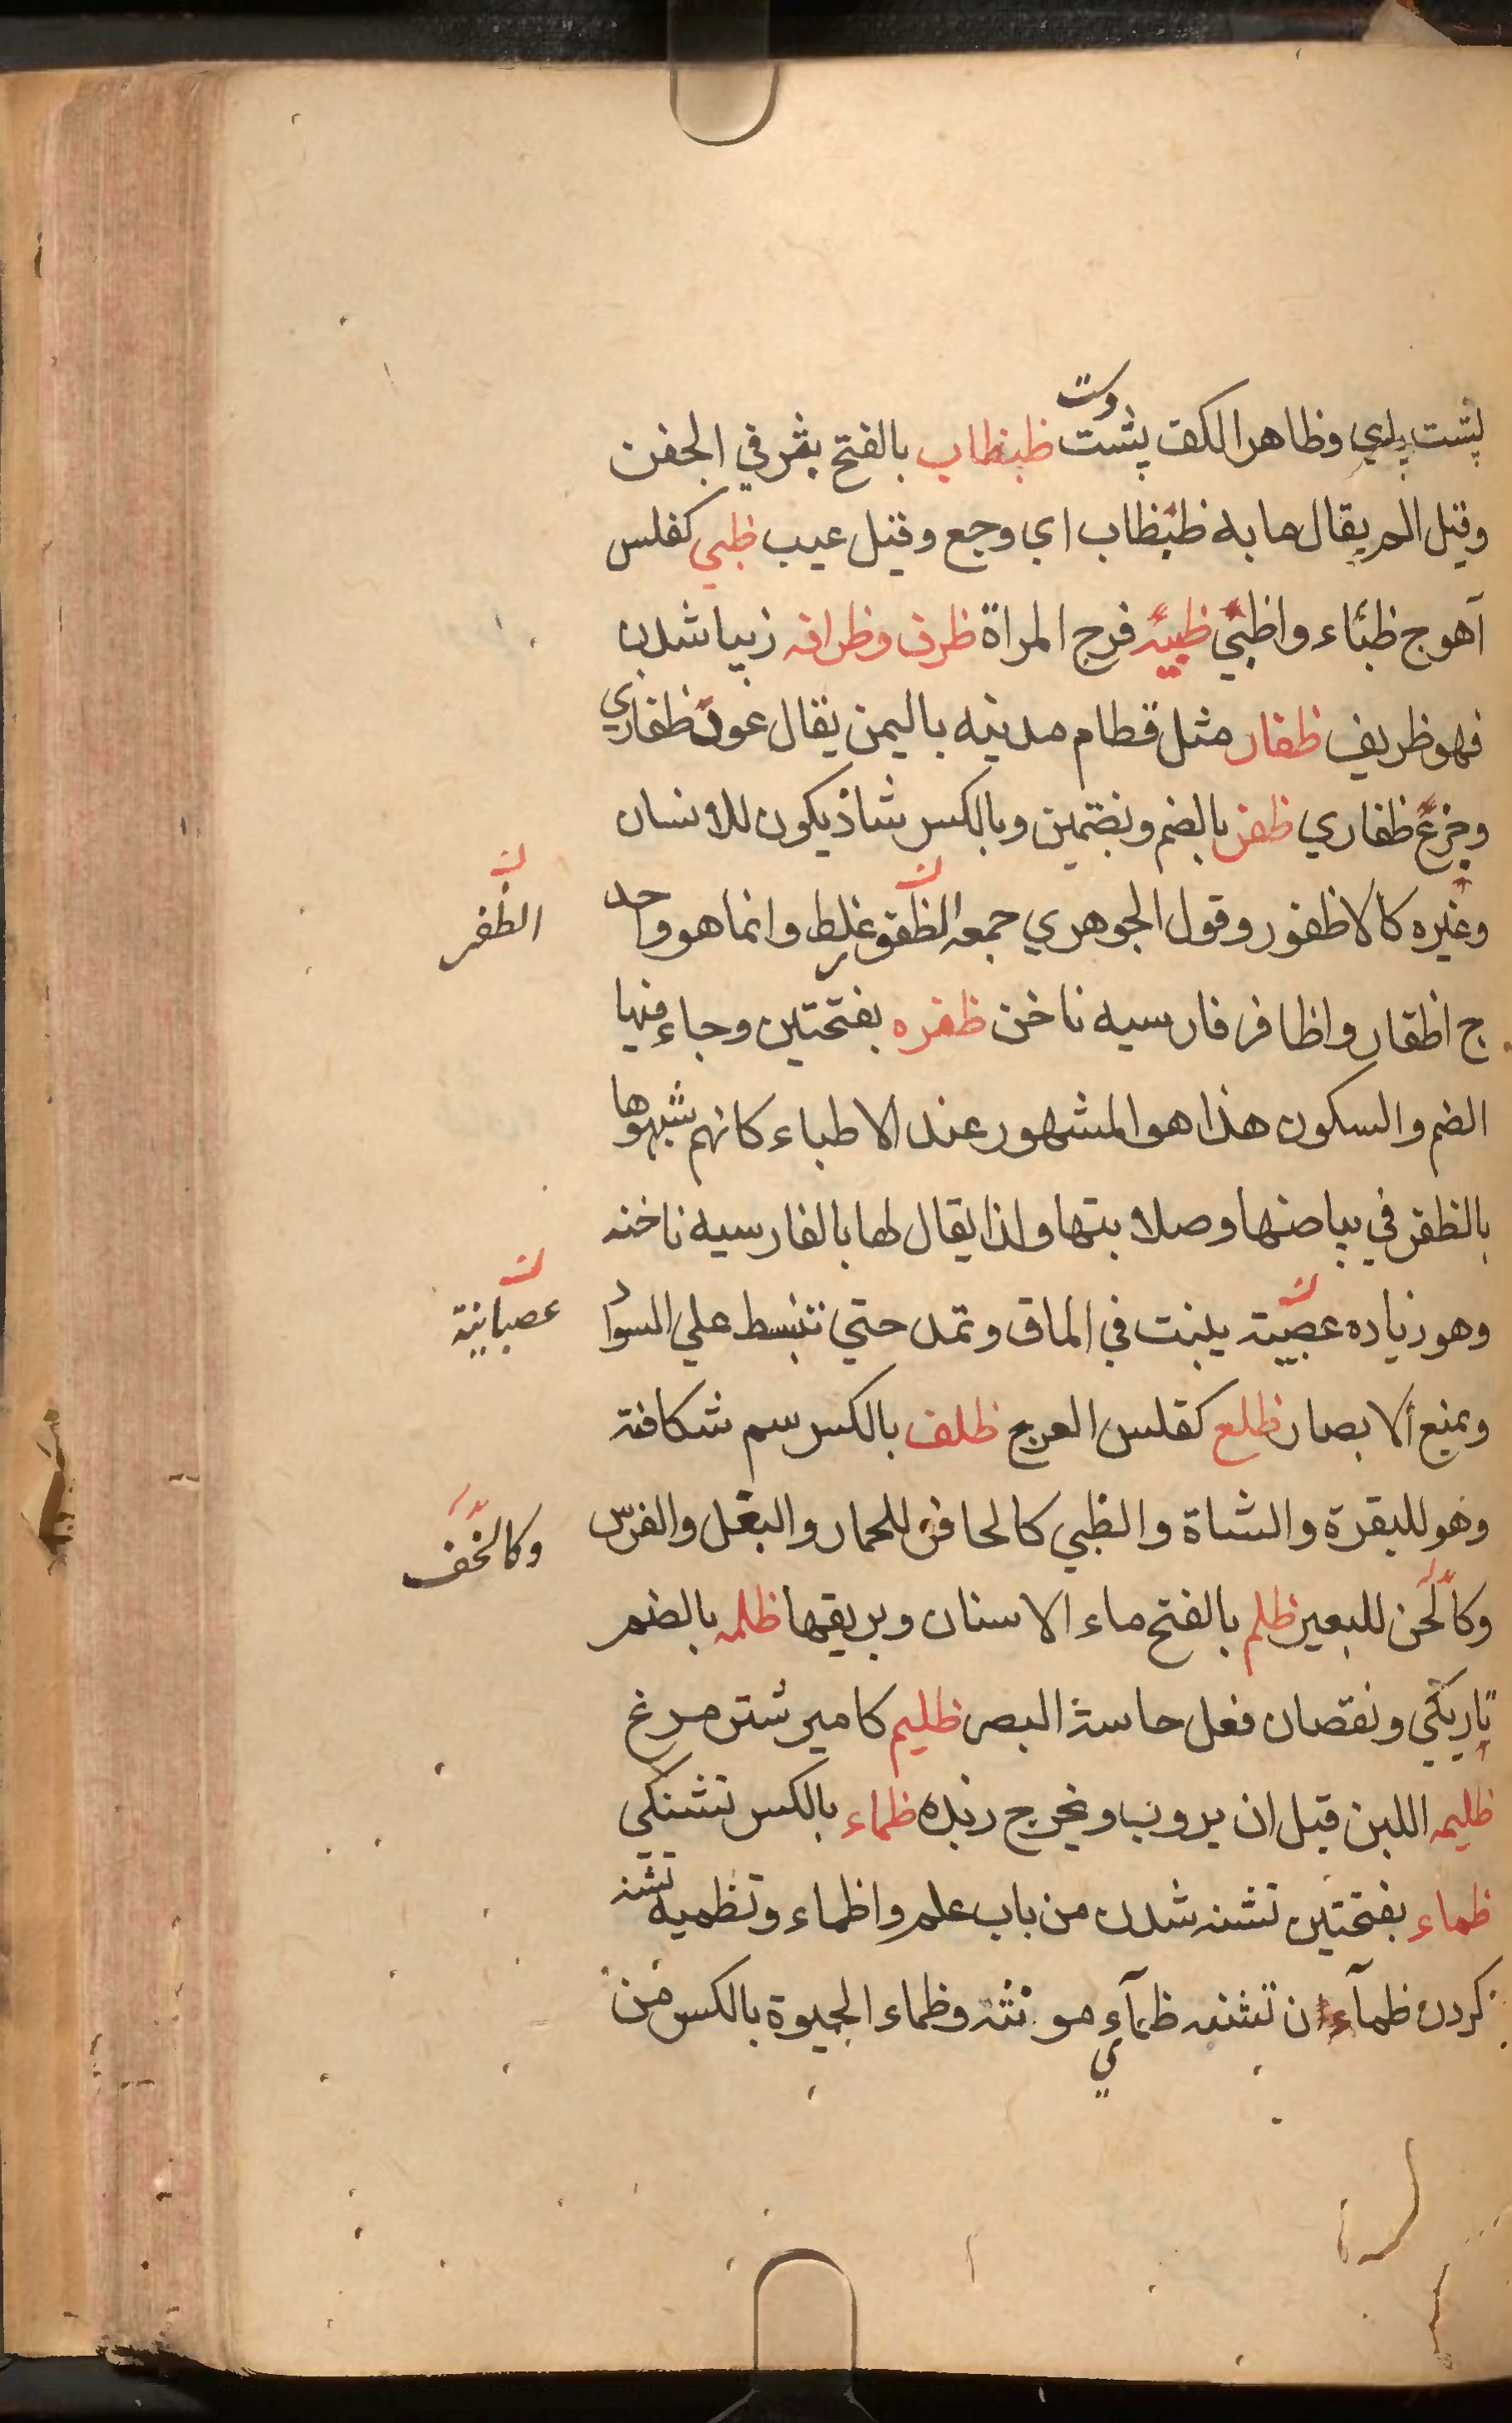 پشت پای وظاهر الكف پشت دست ظبظاب بالفتح بثر في الجفن
وقيل الم يقال ما به ظبظاب اي وجع وقيل عيب ظبي كفلس
آهو ج ظباء واظبي ظبيه فرج المراة ظرف وظرافه زيبا شدن
فهو ظريف ظفار مثل قطام مدينه باليمن يقال عود ظفاري
وجزع ظفاري ظفر بالضم وبضتمين وبالكسر شاذ يكون للانسان
وغيره كالاظفور وقول الجوهري جمعه الظفور غلط وانما هو واحد
الظفر
ج اظفار واظافر فارسيه ناخن ظفره بفتحتين وجاء فيها
الضم والسكون هذا هو المشهور عند الاطباء كانهم شبهوها
بالظفر في بياضها وصلابتها ولذا يقال لها بالفارسيه ناخنه
وهو زياده عصبية ينبت في الماق وتمد حتي تنبسط علي السواد
عصبانية
ويمنع الابصار ظلع كفلس العرج ظلف بالكسر سم شكافته
وهو للبقرة والشاة والظبي كالحافر للحمار والبغل والفرس
وكالخف
وكالخن للبعير ظلم بالفتح ماء الاسنان وبريقها ظلمه بالضم
تاريكي ونقصان فعل حاسة البصر ظليم كامير شتر مرغ
ظليمه اللبن قبل ان يروب ويخرج زبده ظماء بالكسر تشنكي
ظماء بفتحتين تشنه شدن من باب علم واظماء وتظميه تشنه
كردن ظمآن تشنه ظمآي مونثه وظماء الحيوة بالكسر من